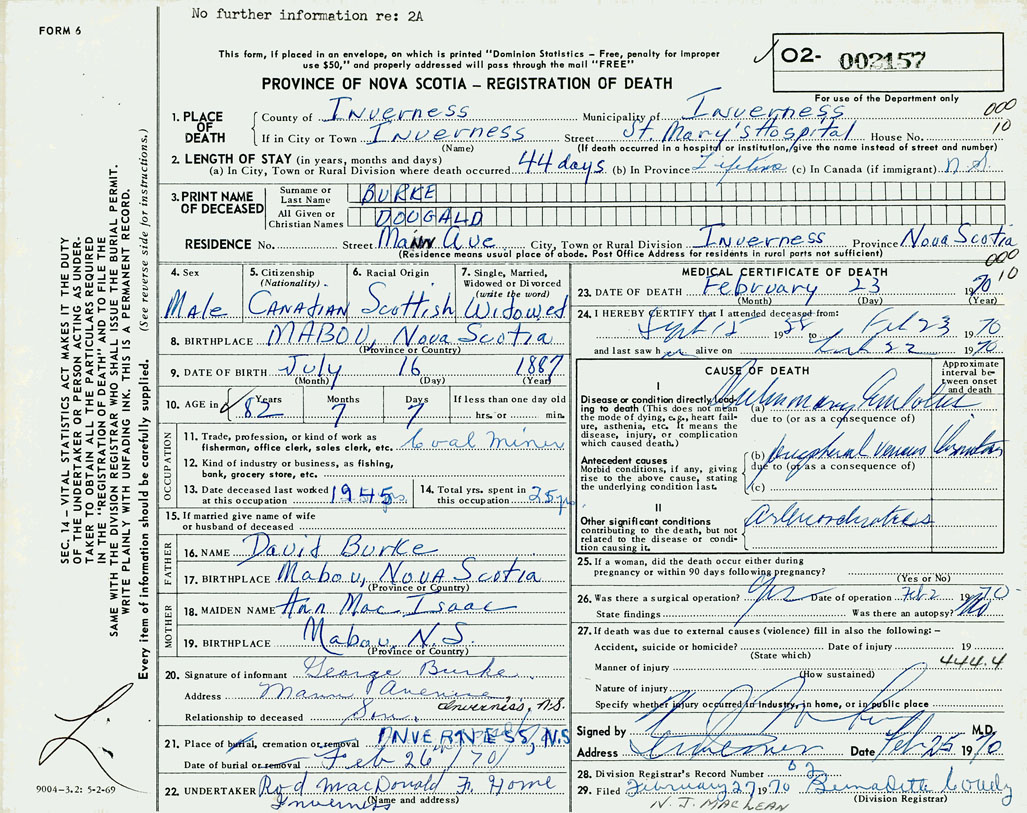 No further information re: 2A
FORM 6
This form, if placed in an envelope, on which is printed "Dominion Statistics – Free, penalty for improper
use $50," and properly addressed will pass through the mail "FREE"
O2- 002157
For use of the Department only
PROVINCE OF NOVA SCOTIA – REGISTRATION OF DEATH
000
10
1. PLACE OF DEATH
County of Inverness Municipality of Inverness
If in City or Town Inverness Street St. Mary's Hospital House No.
(Name) (If death occurred in a hospital or institution, give the name instead of street and number)
2. LENGTH OF STAY (in years, months and days)
(a) In City, Town or Rural Division where death occurred 44 days (b) In Province Lifetime (c) In Canada (if immigrant) N.S.
3. PRINT NAME OF DECEASED
Surname or Last Name BURKE
All Given or Christian Names DOUGALD
RESIDENCE No. Street Mann Ave City, Town or Rural Division Inverness Province Nova Scotia
(Residence means usual place of abode. Post Office Address for residents in rural parts not sufficient)
000
10
4. Sex Male
5. Citizenship (Nationality) Canadian
6. Racial Origin Scottish
7. Single, Married, Widowed or Divorced (write the word) Widowed
8. BIRTHPLACE MABOU, Nova Scotia
(Province or Country)
9. DATE OF BIRTH July 16 1887
(Month) (Day) (Year)
10. AGE in Years Months Days If less than one day old
82 7 7 hrs. or min.
OCCUPATION
11. Trade, profession, or kind of work as
fisherman, office clerk, sales clerk, etc. Coal miner
12. Kind of industry or business, as fishing,
bank, grocery store, etc.
13. Date deceased last worked at this occupation 1945
14. Total yrs. spent in this occupation 25 yrs
15. If married give name of wife
or husband of deceased
FATHER
16. NAME David Burke
17. BIRTHPLACE Mabou, Nova Scotia
(Province or Country)
MOTHER
18. MAIDEN NAME Ann Mac Isaac
19. BIRTHPLACE Mabou, N.S.
(Province or Country)
20. Signature of informant George Burke
Address Mann Avenue, Inverness, N.S.
Relationship to deceased Son.
21. Place of burial, cremation or removal INVERNESS, N.S
Date of burial or removal Feb 26th/70
22. UNDERTAKER Rod MacDonald F. Home
Inverness
(Name and address)
MEDICAL CERTIFICATE OF DEATH
23. DATE OF DEATH February 23 1970
(Month) (Day) (Year)
24. I HEREBY CERTIFY that I attended deceased from:
Sept 15 19 to Feb 23 1970
and last saw h alive on Feb 22 1970
CAUSE OF DEATH
Approximate interval between onset and death
I
Disease or condition directly leading to death (This does not mean
the mode of dying, e.g., heart failure, asthenia, etc. It means the
disease, injury, or complication
which caused death.)
(a) Pulmonary Embolus
due to (or as a consequence of)
Antecedent causes
Morbid conditions, if any, giving
rise to the above cause, stating
the underlying condition last.
(b) peripheral venous thrombosis
due to (or as a consequence of)
(c)
II
Other significant conditions
contributing to the death, but not
related to the disease or condition causing it.
Arteriosclerosis
25. If a woman, did the death occur either during
pregnancy or within 90 days following pregnancy?
(Yes or No)
26. Was there a surgical operation? Yes Date of operation Feb 2 1970
State findings Was there an autopsy? No
27. If death was due to external causes (violence) fill in also the following: –
Accident, suicide or homicide? Date of injury 19
(State which)
444.4
Manner of injury
(How sustained)
Nature of injury
Specify whether injury occurred in Industry, in home, or in public place
Signed by M.D.
Address Inverness Date Feb 25 1970
28. Division Registrar's Record Number
29. Filed February 27 1970 Bernadette
(Division Registrar)
N. J. MACLEAN
SEC. 14 – VITAL STATISTICS ACT MAKES IT THE DUTY
OF THE UNDERTAKER OR PERSON ACTING AS UNDERTAKER TO OBTAIN ALL THE PARTICULARS REQUIRED
IN THE "REGISTRATION OF DEATH" AND TO FILE THE
SAME WITH THE DIVISION REGISTRAR WHO SHALL ISSUE THE BURIAL PERMIT.
WRITE PLAINLY WITH UNFADING INK. THIS IS A PERMANENT RECORD.
Every item of information should be carefully supplied. (See reverse side for instructions.)
9004-3.2: 5-2-69